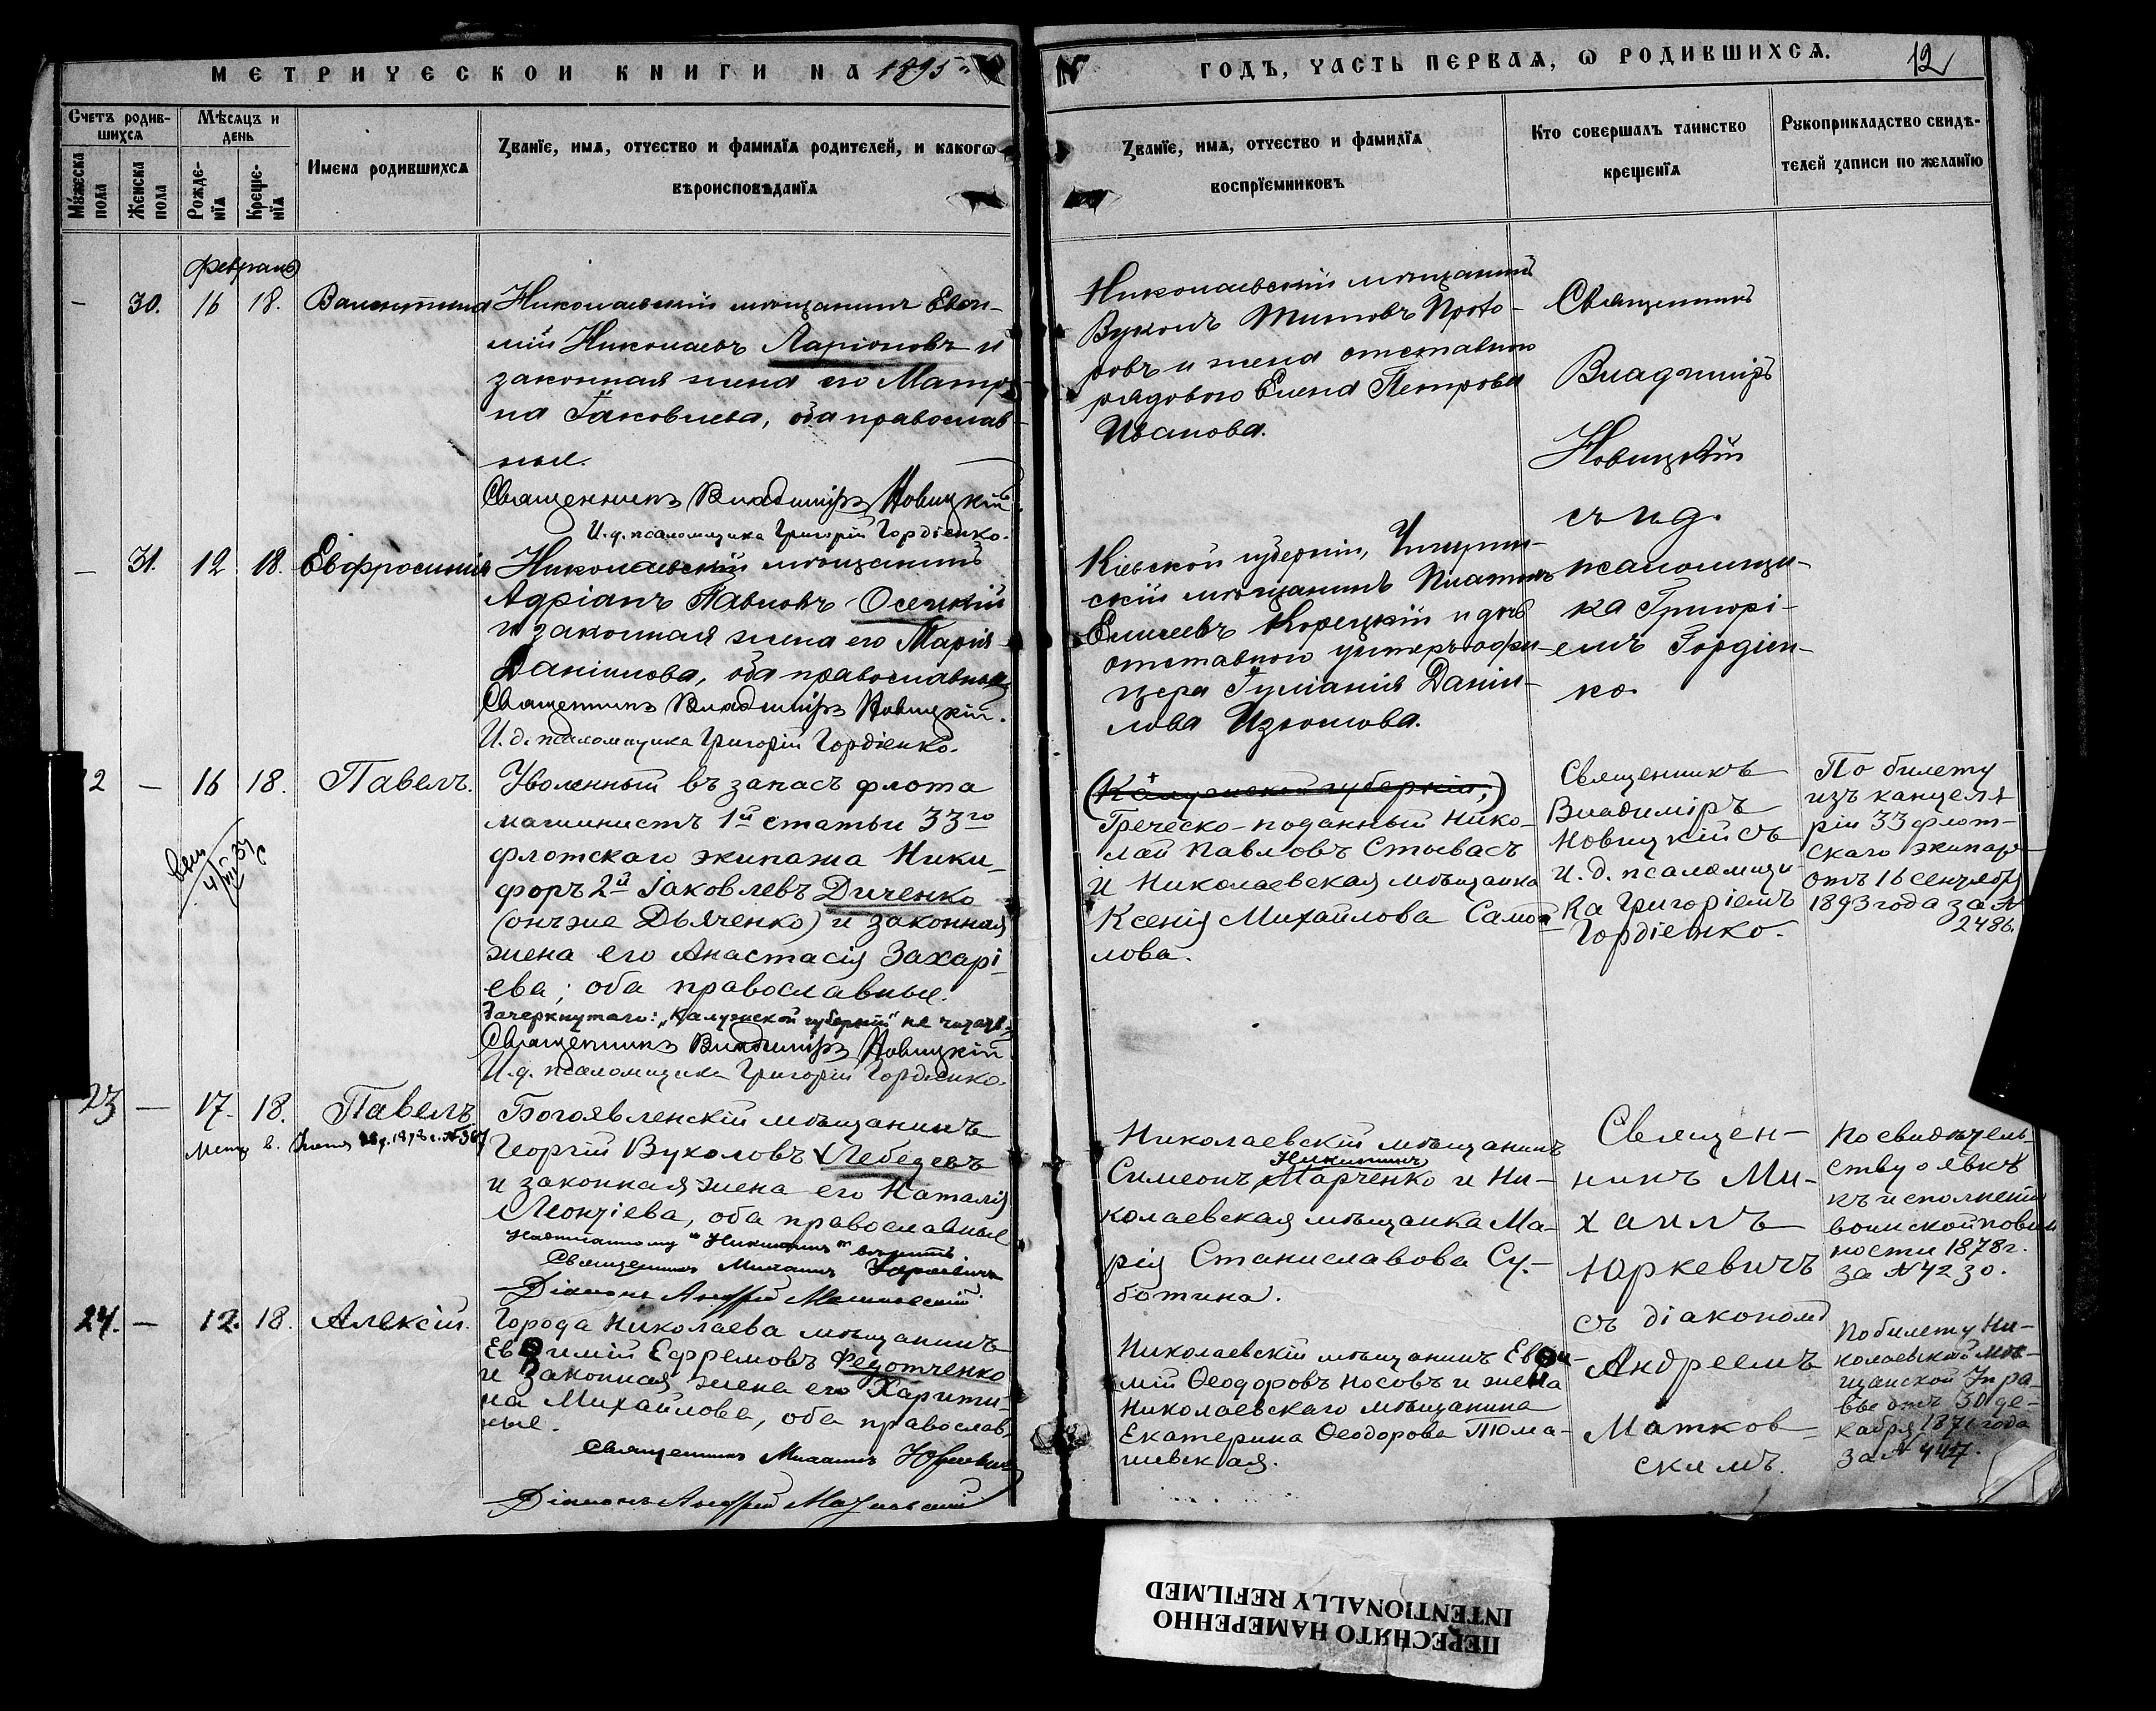 МЕТРИЧЕСКОЙ КНИГИ НА 1895
ГОДЪ, ЧАСТЬ ПЕРВАЯ, Ѡ РОДИВШИХСЯ.
12
Счетъ родив-
шихся
Мѣсяцъ и
день
Мужеска
пола
Женска
пола
Рожде-
нїя
Креще-
нїя
Имена родившихся
Званїе, имя, отчество и фамилїя родителей, и какогѡ
вѣроисповѣданїя
Званїе, имя, отчество и фамилїя
воспрїемниковъ
Кто совершалъ таинство
крещенїя
Рукоприкладство свидѣ-
телей записи по желанїю
февраль
— 30. 16 18. Валентина
Николаевскій мѣщанинъ Евѳи-
мій Николаевъ Ларіоновъ и
законная жена его Матро-
на Іаковлева, оба православ-
ные.
Священникъ Владиміръ Новицкій.
И. д. псаломщика Григорій Гордіенко.
Николаевскій мѣщанинъ
Вуколъ Титовъ
ровъ и жена отставного
рядового Елена Петрова
Иванова.
Священникъ
Владиміръ
Новицкій
съ и д.
псаломщи-
ка Григорі-
емъ Гордіен-
ко.
— 31. 12 18. Евфросинія
Николаевскій мѣщанинъ
Адріанъ Павловъ Осецкій
и законная жена его Марія
Даніилова, оба православные
Священникъ Владиміръ Новицкій.
И. д. псаломщика Григорій Гордіенко.
Кіевской губерніи, Чигирин-
скій мѣщанинъ Платонъ
Елисеевъ Корецкій и дочь
отставного унтеръ-офи-
цера Іуліанія Даніи-
лова Изюмова.
2 — 16 18. Павелъ.
Уволенный въ запасъ флота
машинистъ 1й статьи 33го
флотскаго экипажа Ники-
форъ 2й Іаковлевъ Диченко
(онъ же Дьяченко) и законная
жена его Анастасія Захарі-
ева; оба православные.
Зачеркнутаго: „Калужской губерніи" не читать
Священникъ Владиміръ Новицкій
И. д. псаломщика Григорій Гордіенко.
(Калужской губерніи,)
Греческо-поданный Нико-
лай Павловъ Стывасъ
и Николаевская мѣщанка
Ксенія Михайлова Самой-
лова.
Священникъ
Владиміръ
Новицкій съ
и. д. псаломщи-
ка Григоріемъ
Гордіенко.
По билету
изъ канцеля
ріи 33 флот-
скаго экипаж
отъ 16 сентября
1893 года за №
2486.
23 — 17. 18. Павелъ
Богоявленскій мѣщанинъ
Георгій Вуколовъ Лебедевъ
и законная жена его Наталія
Леонтіева, оба православные
Надписанному „Никитинъ" вѣрить.
Священникъ Михаилъ Юркевичъ
Діаконъ Андрей Матковскій
Николаевскій мѣщанинъ
Никитинъ
Симеонъ Марченко и Ни-
колаевская мѣщанка Ма-
рія Станиславова Су-
ботина.
Священ-
никъ Ми-
хаилъ
Юркевичъ
съ діакономъ
Андреемъ
Матков-
скимъ.
По свидѣтель-
ству о явкѣ
къ исполненію
воинской повин
ности 1878 г.
за № 4230.
24. — 12. 18. Алексій.
Города Николаева мѣщанинъ
Евѳимій Ефремовъ Федотченко
и законная жена его Харити-
на Михайлова, оба православ-
ные.
Священникъ Михаилъ Юркевичъ
Діаконъ Андрей Матковскій
Николаевскій мѣщанинъ Евѳи-
мій Ѳеодоровъ Носовъ и жена
Николаевскаго мѣщанина
Екатерина Ѳеодорова Тома-
шевская.
По билету Ни-
колаевской мѣ-
щанской Упра-
вы отъ 30 де-
кабря 1876 года
за №
ПЕРЕСНЯТО НАМЕРЕННО
INTENTIONALLY REFILMED